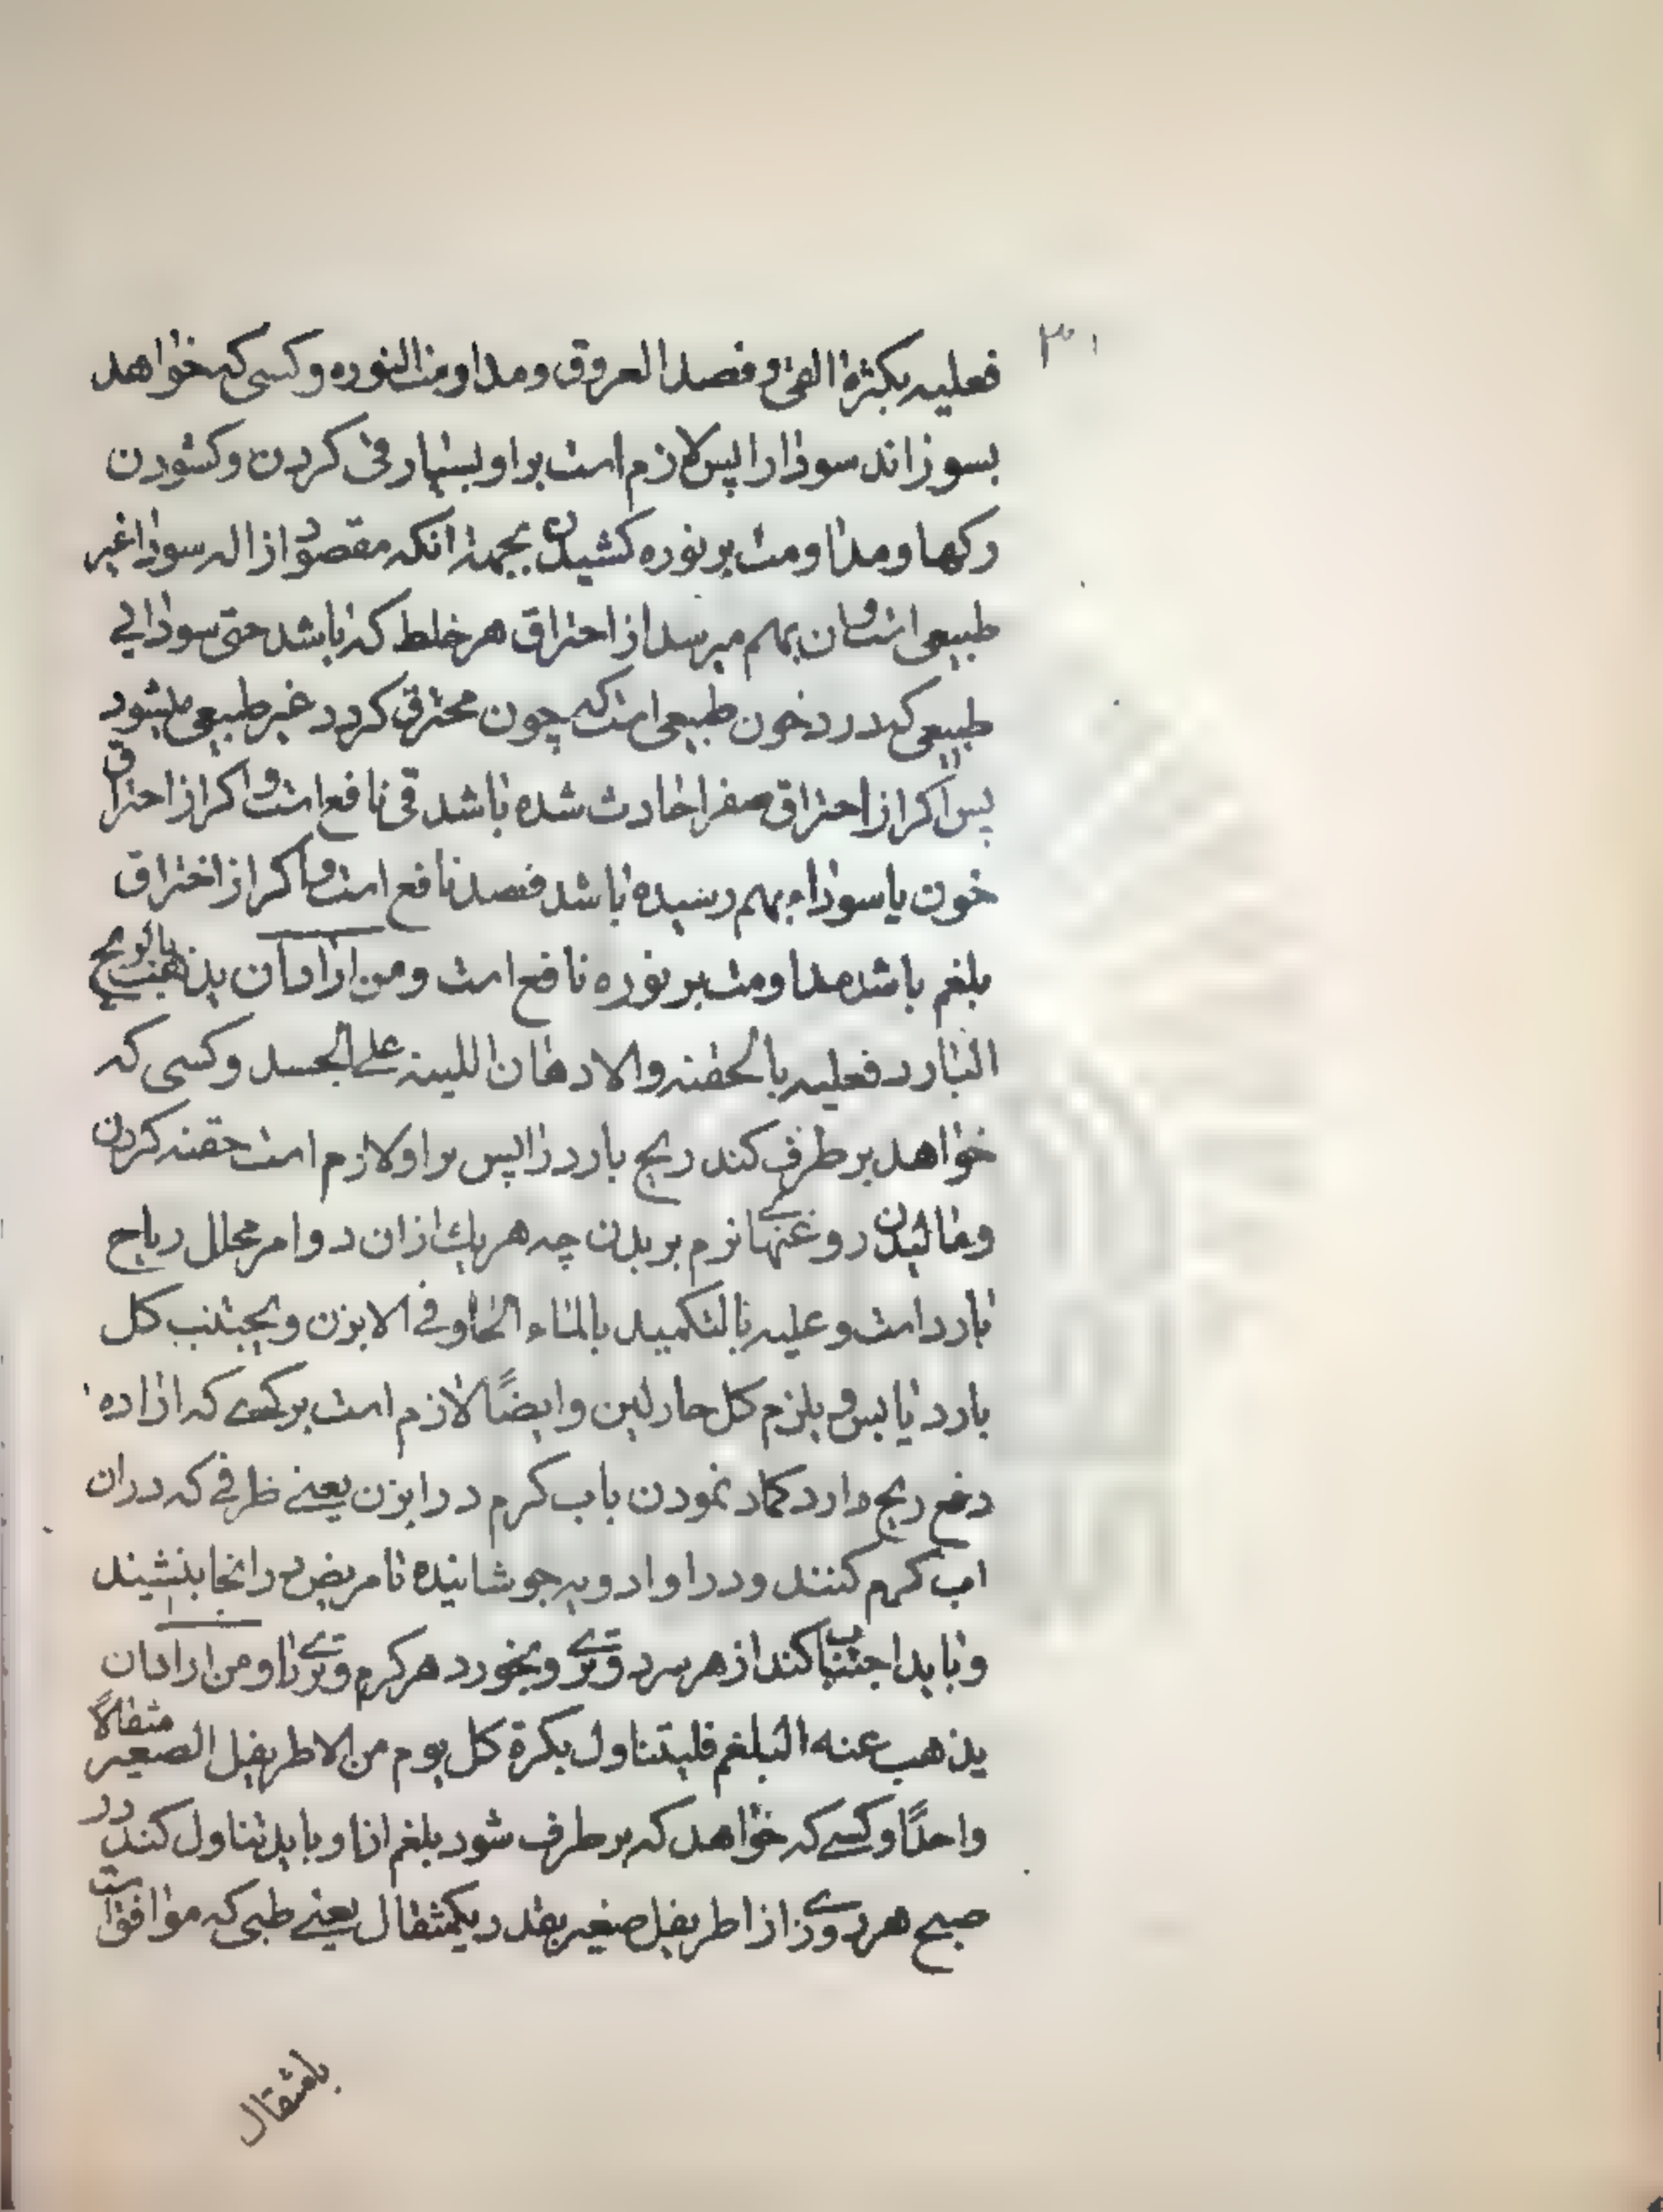 ۳۰۱
فعلیه بکثرة القئ و فصد العروق و مداومة النوره و کسی که خواهد
بسوزاند سودا را پس لازم است بر او بسیار قی کردن و کشودن
رکها و مداومت بر نوره کشیدن بجهة انکه مقصود ازاله سودا غیر
طبیعی است و ان بهم میرسد از احتراق هر خلط که باشد حتی سودایی
طبیعی که درد خون طبیعی است که چون محترق کردد غیر طبیعی میشود
پس اکر از احتراق صفرا حادث شده باشد قی نافع است و اکر از احتراق
خون یا سوداء بهم رسیده باشد فصد نافع است و اکر از احتراق
بلغم باشد مداومت بر نوره نافع است و من اراد ان یذهب بالریح
البارد فعلیه بالحقنه و الادهان اللینه علی الجسد و کسی که
خواهد بر طرف کند ریح بارد را پس بر او لازم است حقنه کردن
و مالیدن روغنهای نرم بر بدن چه هریک ازان دو امر محلل ریاح
بارد است و علیه بالتکمید بالماء الحار فی الابزن و یجتنب کل
بارد یابس و یلزم کل حار لین و ایضًا لازم است بر کسے که اراده
دفع ریح دارد کماد نمودن باب کرم در ابزن یعنے ظرفے که دران
اب کرم کنند و در او ادویه جوشانیده تا مریض در انجا بنشیند
و باید اجتناب کند از هر سرد و ترے و بخورد هر کرم و ترے را و من اراد ان
یذهب عنه البلغم فلیتناول بکرة کل یوم من الاطریفل الصغیر مثقالًا
واحدًا و کسے که خواهد که بر طرف شود بلغم از او باید تناول کند در
صبح هر روزے از اطریفل صغیر بقدر یکمثقال یعنے طبی که موافق است
بامثقال